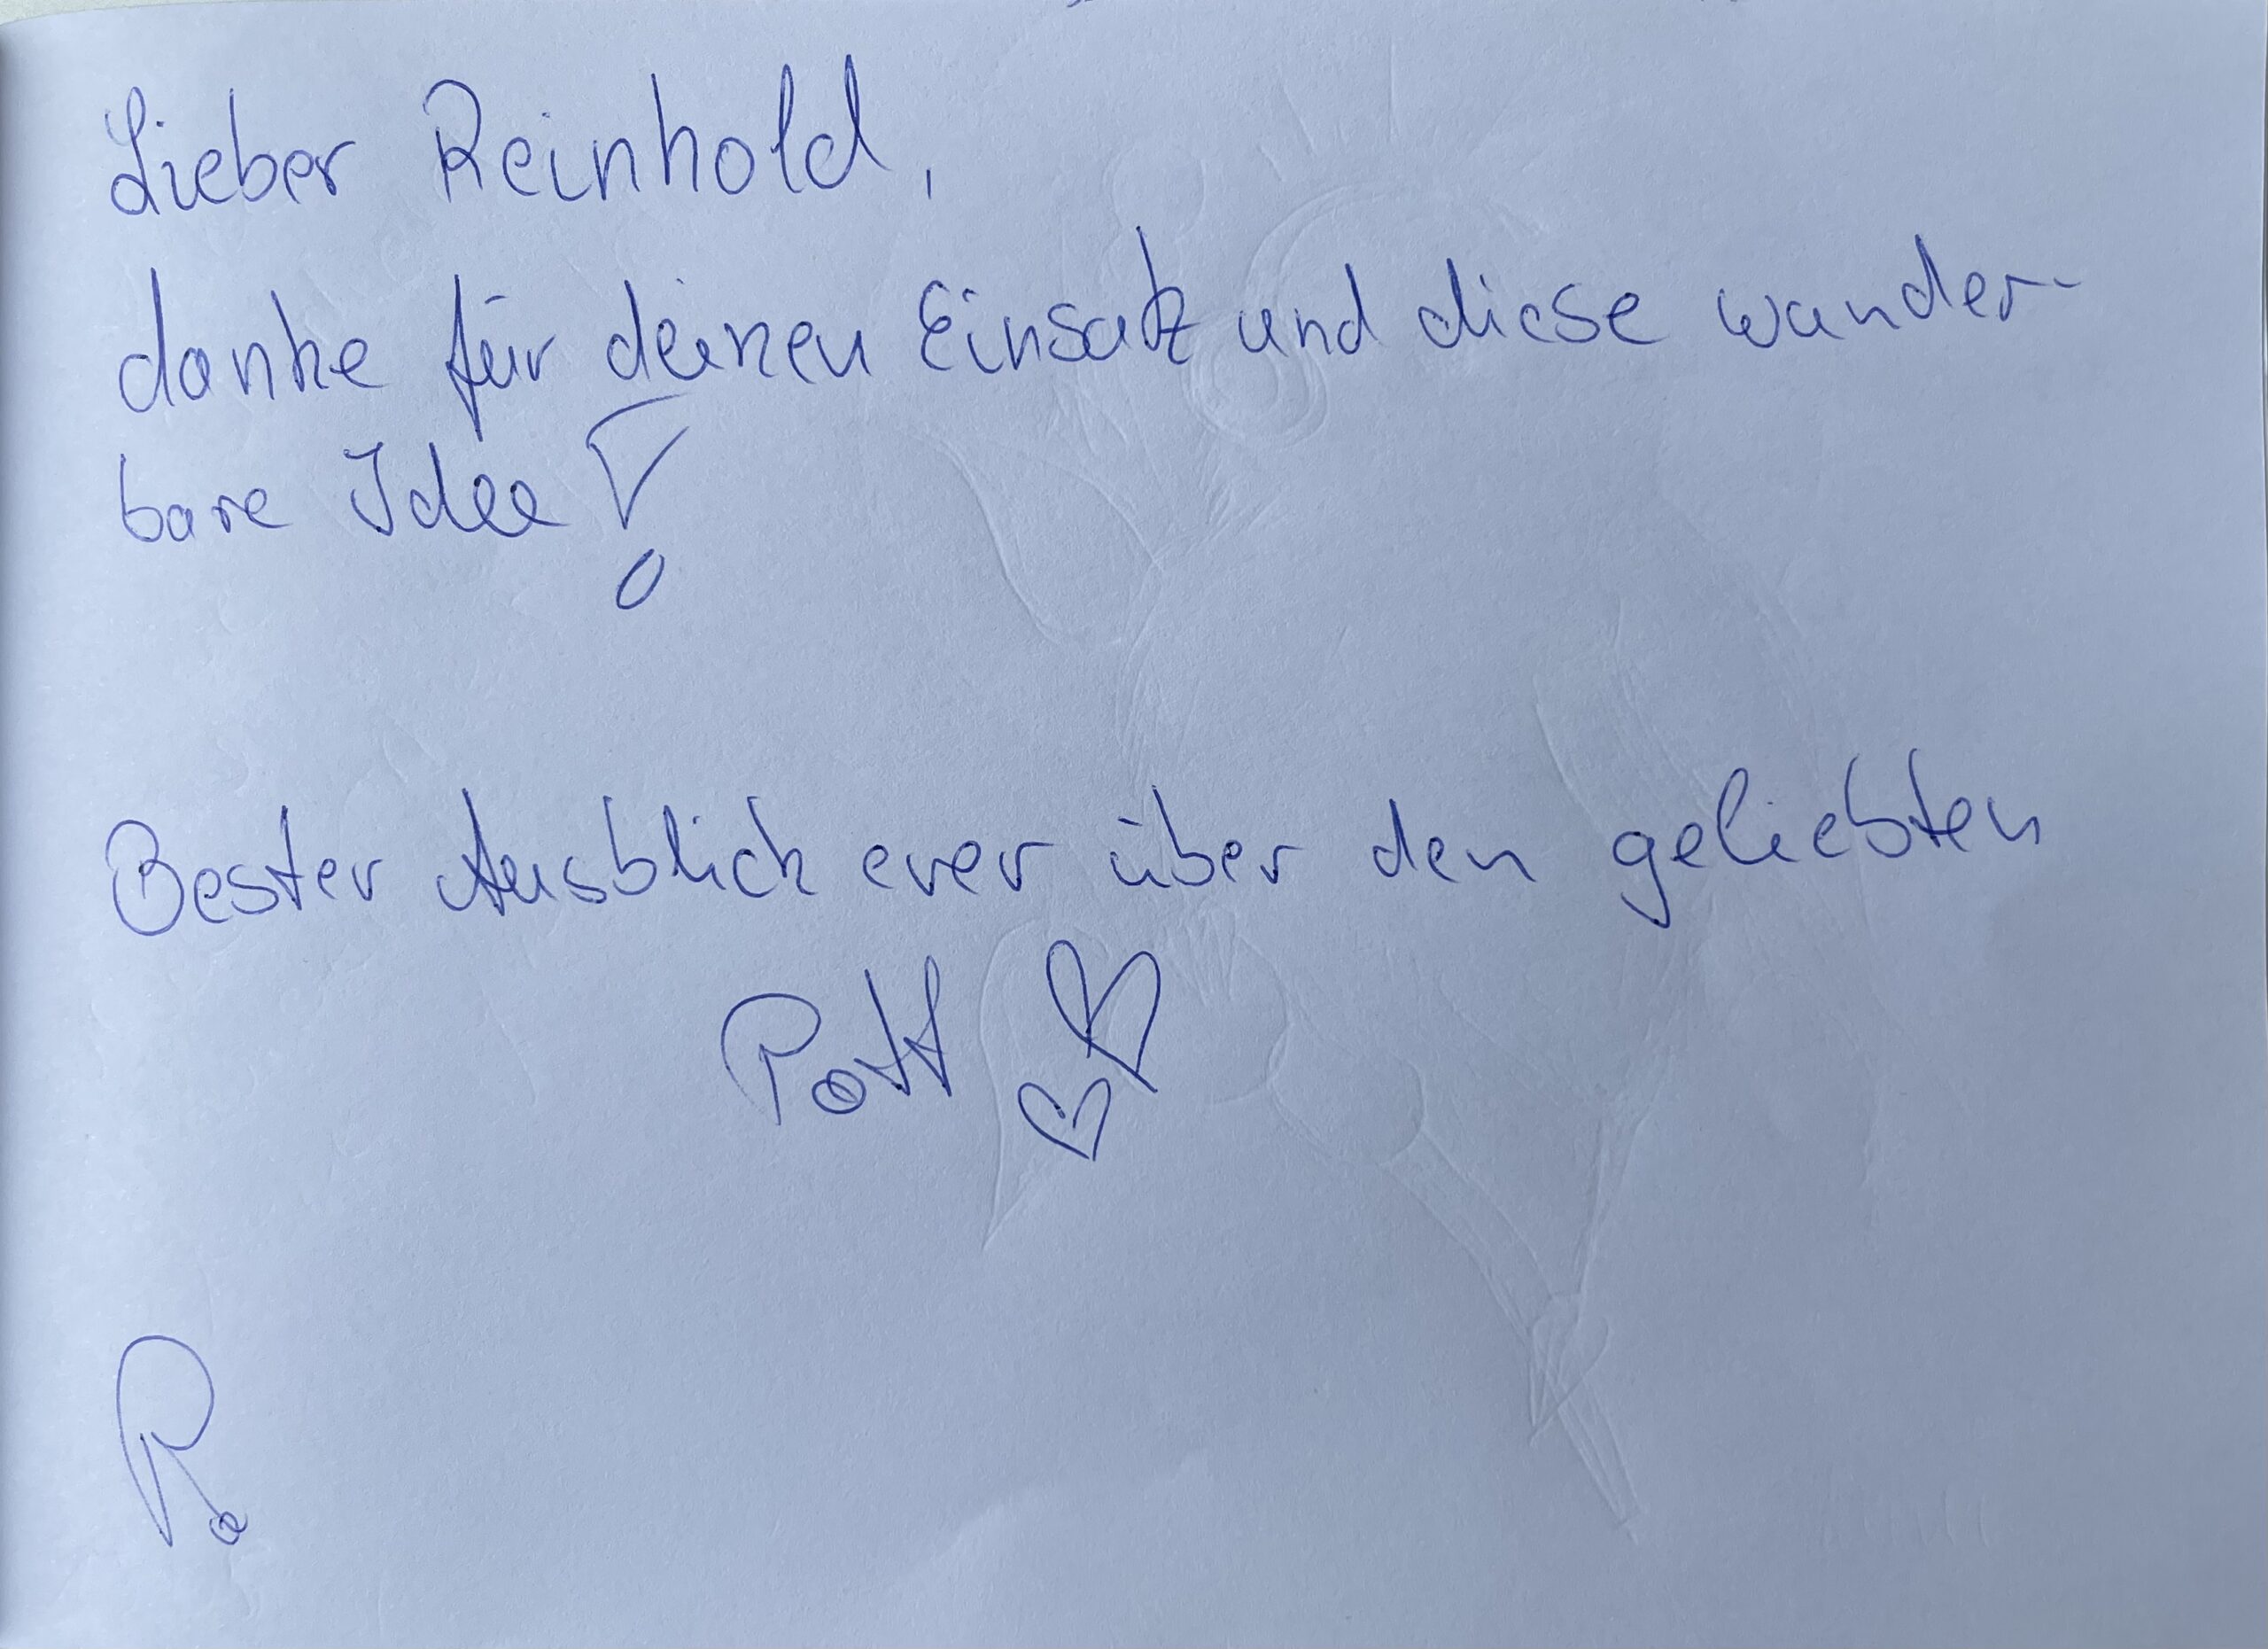 Lieber Reinhold,
danke für deinen Einsatz und diese wunder-
bare Idee!
Bester Ausblick ever über den geliebten
Pott ♡♡
R.